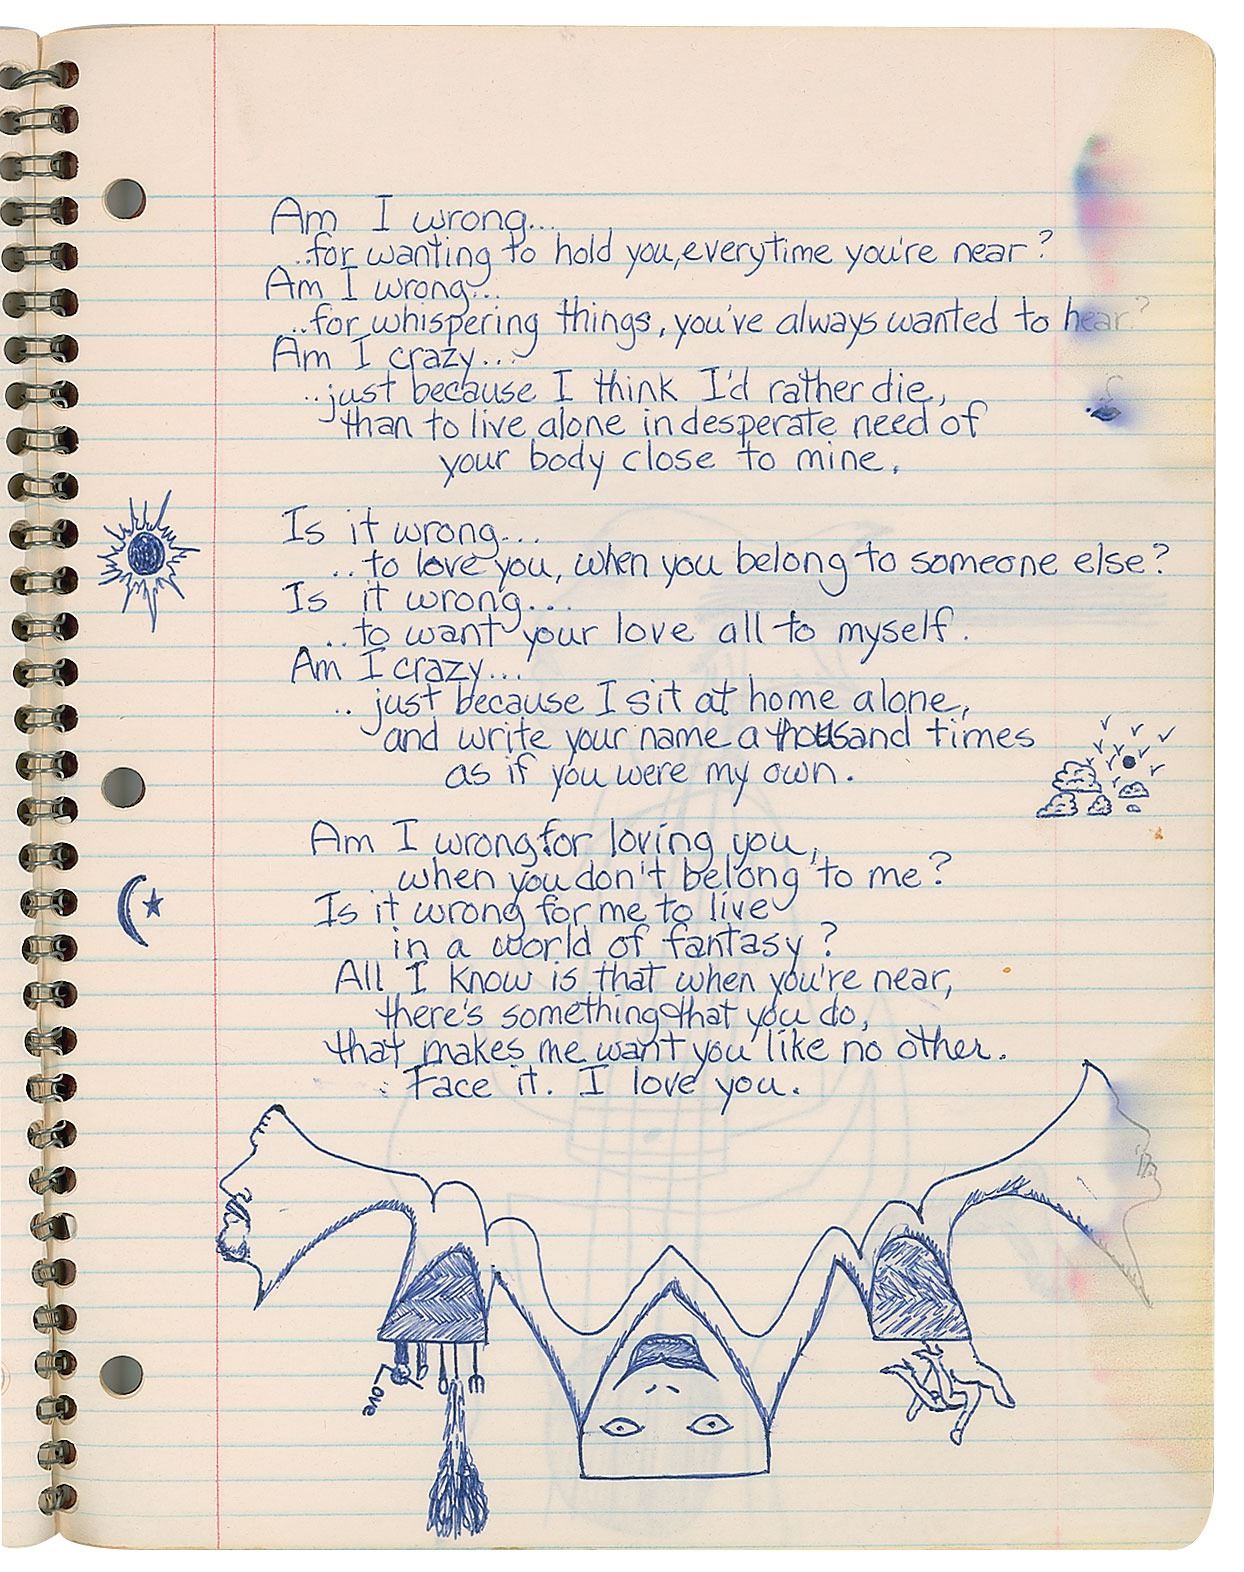 Am I wrong...
..for wanting to hold you, everytime you're near?
Am I wrong...
..for whispering things, you've always wanted to hear?
Am I crazy...
..just because I think I'd rather die,
than to live alone in desperate need of
your body close to mine.
Is it wrong...
..to love you, when you belong to someone else?
Is it wrong...
..to want your love all to myself.
Am I crazy...
..just because I sit at home alone,
and write your name a thousand times
as if you were my own.
Am I wrong for loving you,
when you don't belong to me?
Is it wrong for me to live
in a world of fantasy?
All I know is that when you're near,
there's something that you do,
that makes me want you like no other.
Face it. I love you.
Love